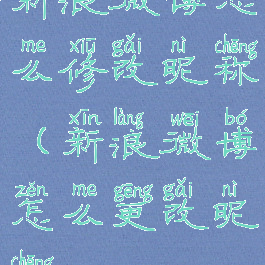 新浪微博怎
me xiū gǎi nì chēng
么修改昵称
xīn làng wēi bó
(新浪微博
zěn me gēng gǎi nì
怎么更改昵
chēng